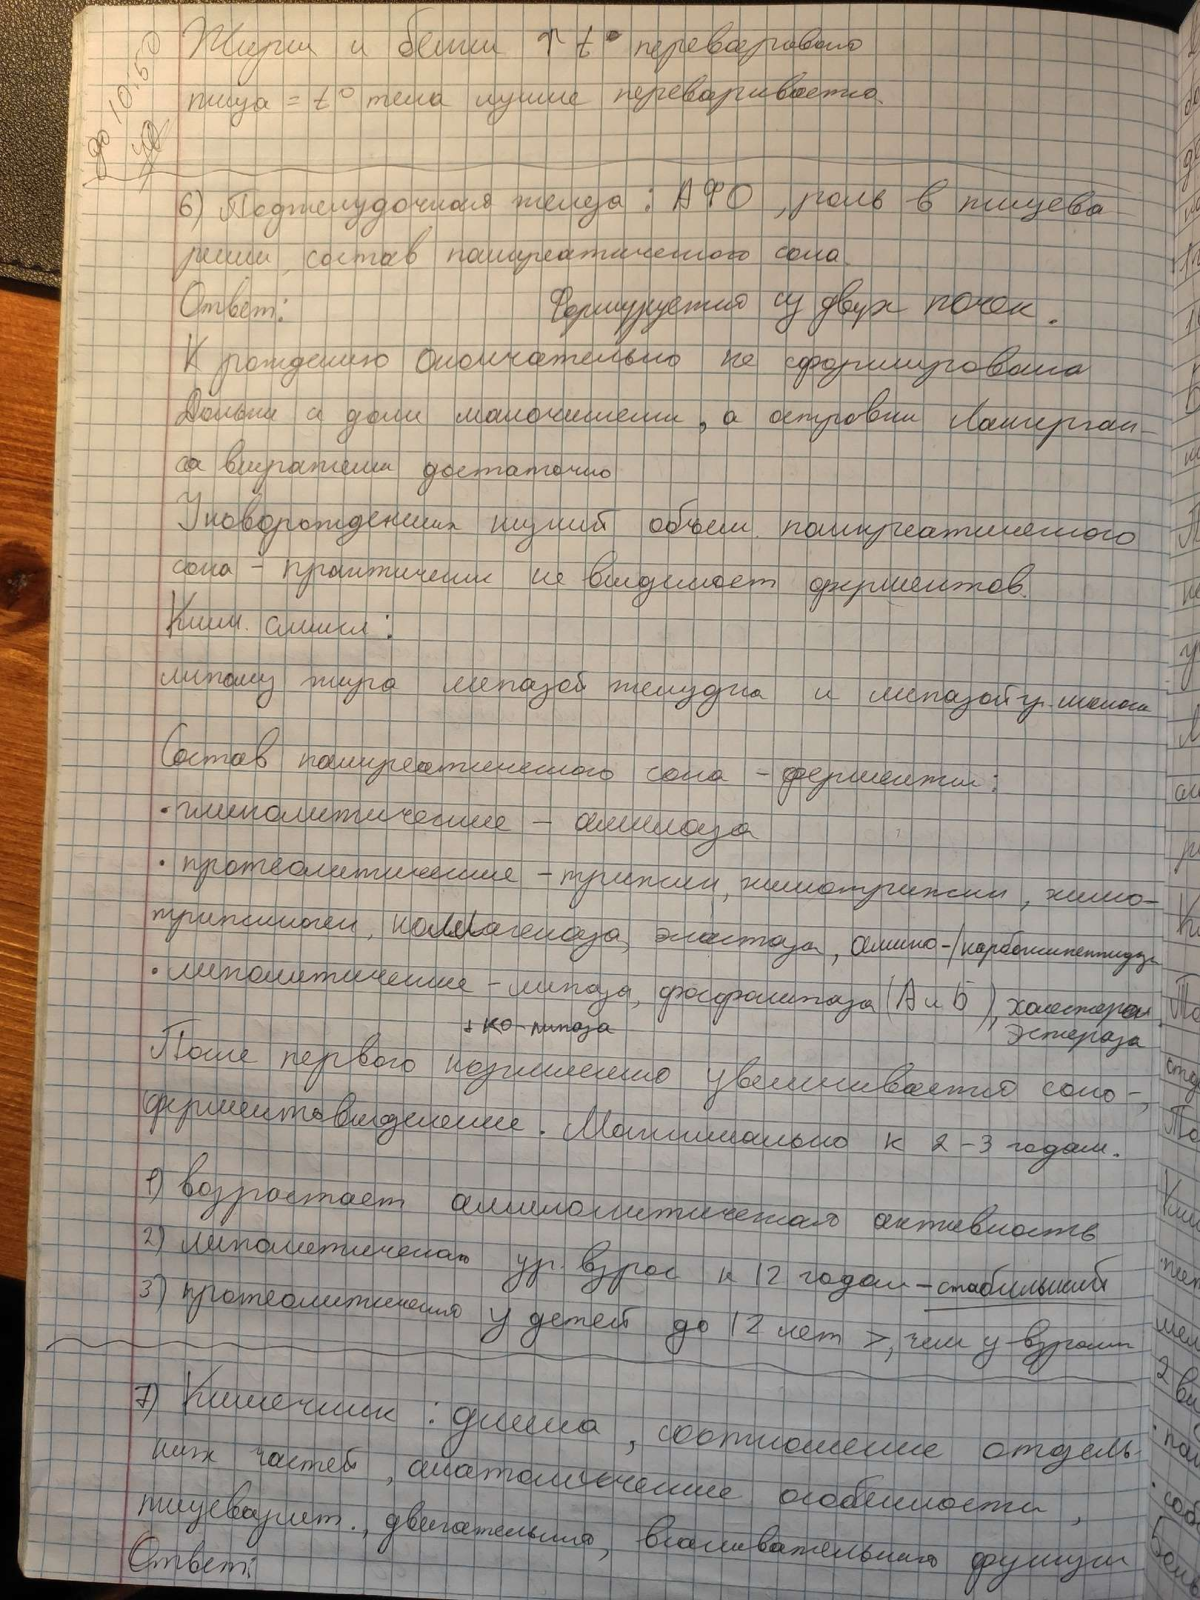 Жиры и белки ↑ t° переваривают
пища = t° тела лучше переваривается.
до 10:50
6) Поджелудочная железа: АФО, роль в пищева
рении, состав панкреатического сока.
Ответ: Формируется из двух почек.
К рождению окончательно не сформирована
Дольки и доли малочисленны, а островки Лангерган-
са выражены достаточно
У новорожденных низкий объем панкреатического
сока - практически не выделяет ферментов.
Клин. смысл:
липолиз жира липазой желудка и липазой гр. молока
Состав панкреатического сока - ферменты:
• гликолитические - амилаза
• протеолитические - трипсин, химотрипсин, химо-
трипсиноген, коллагеназа, эластаза, амино-/карбоксипептидазы
• липолитические - липаза, фосфолипаза (А и Б), холестерол
+ ко-липаза эстераза
После первого кормления увеличивается соко-,
ферментовыделение. Максимально к 2-3 годам.
1) возрастает амилолитическая активность
2) липолитическая ур. взрос к 12 годам - стабильный
3) протеолитическая у детей до 12 лет >, чем у взрослых
7) Кишечник: длина, соотношение отдель
ных частей, анатомические особенности,
пищеварит., двигательная, всасывательная функции
Ответ: